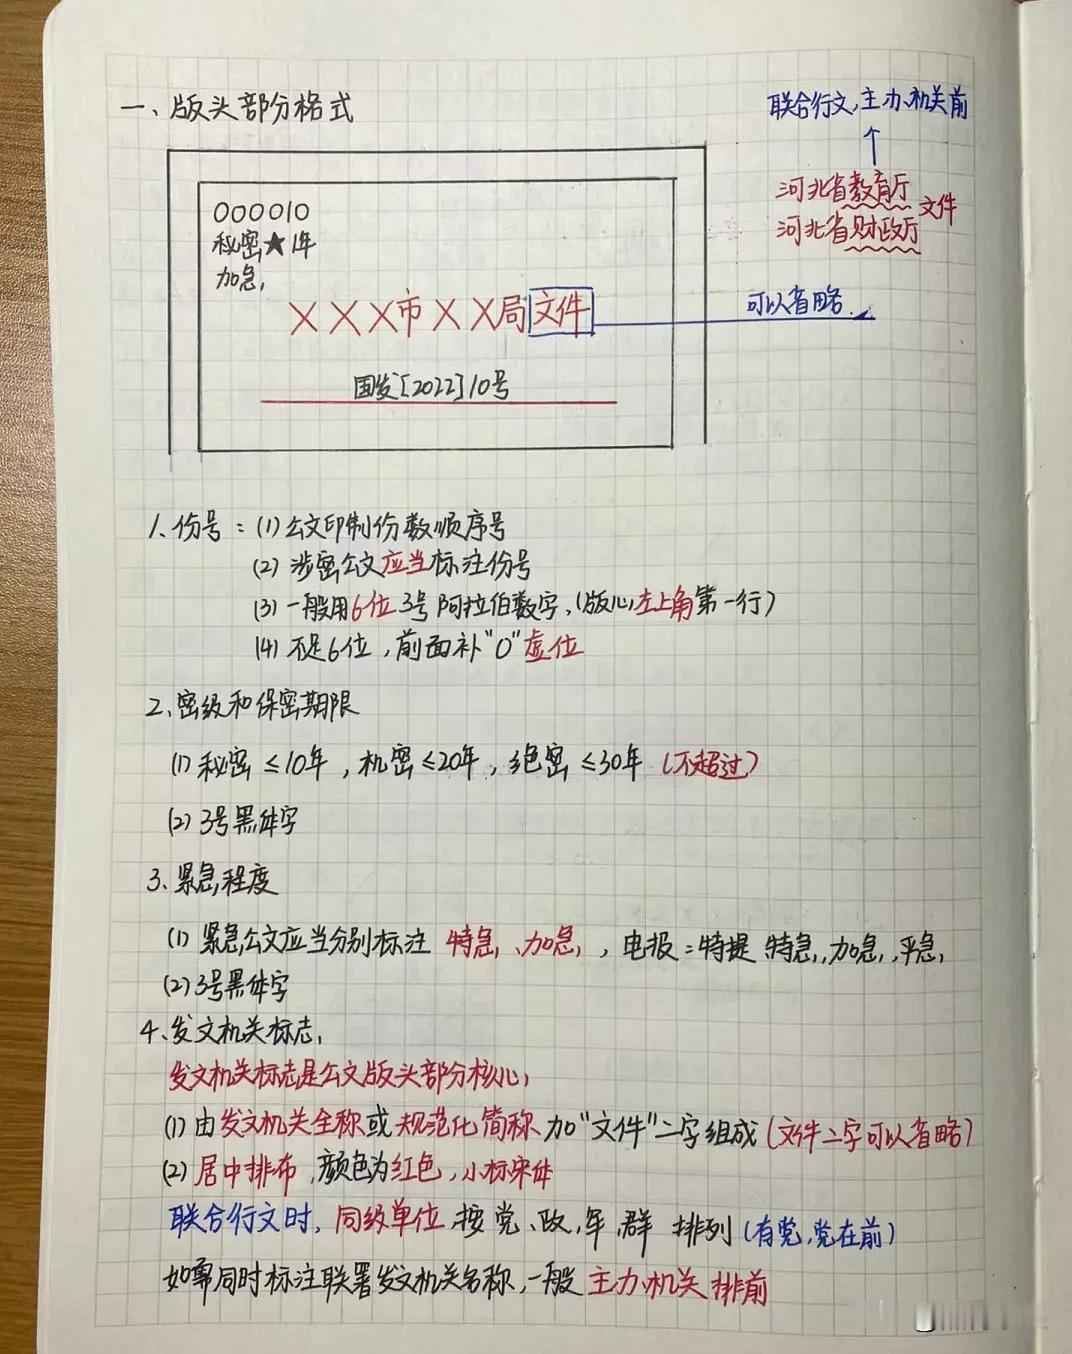 一、版头部分格式
联合行文,主办机关前
河北省教育厅
河北省财政厅 文件
000010
秘密★1年
加急
XXX市XX局文件
可以省略
国发[2022]10号
1、份号：(1)公文印制份数顺序号
(2)涉密公文应当标注份号
(3)一般用6位3号阿拉伯数字,(版心左上角第一行)
(4)不足6位,前面补"0"虚位
2、密级和保密期限
(1)秘密≤10年,机密≤20年,绝密≤30年(不超过)
(2)3号黑体字
3、紧急程度
(1)紧急公文应当分别标注 特急、加急,电报:特提、特急,加急,平急
(2)3号黑体字
4、发文机关标志
发文机关标志是公文版头部分核心
(1)由发文机关全称或规范化简称加"文件"二字组成(文件二字可以省略)
(2)居中排布,颜色为红色,小标宋体
联合行文时,同级单位按党、政,军,群 排列(有党,党在前)
如需同时标注联署发文机关名称,一般主办机关排前